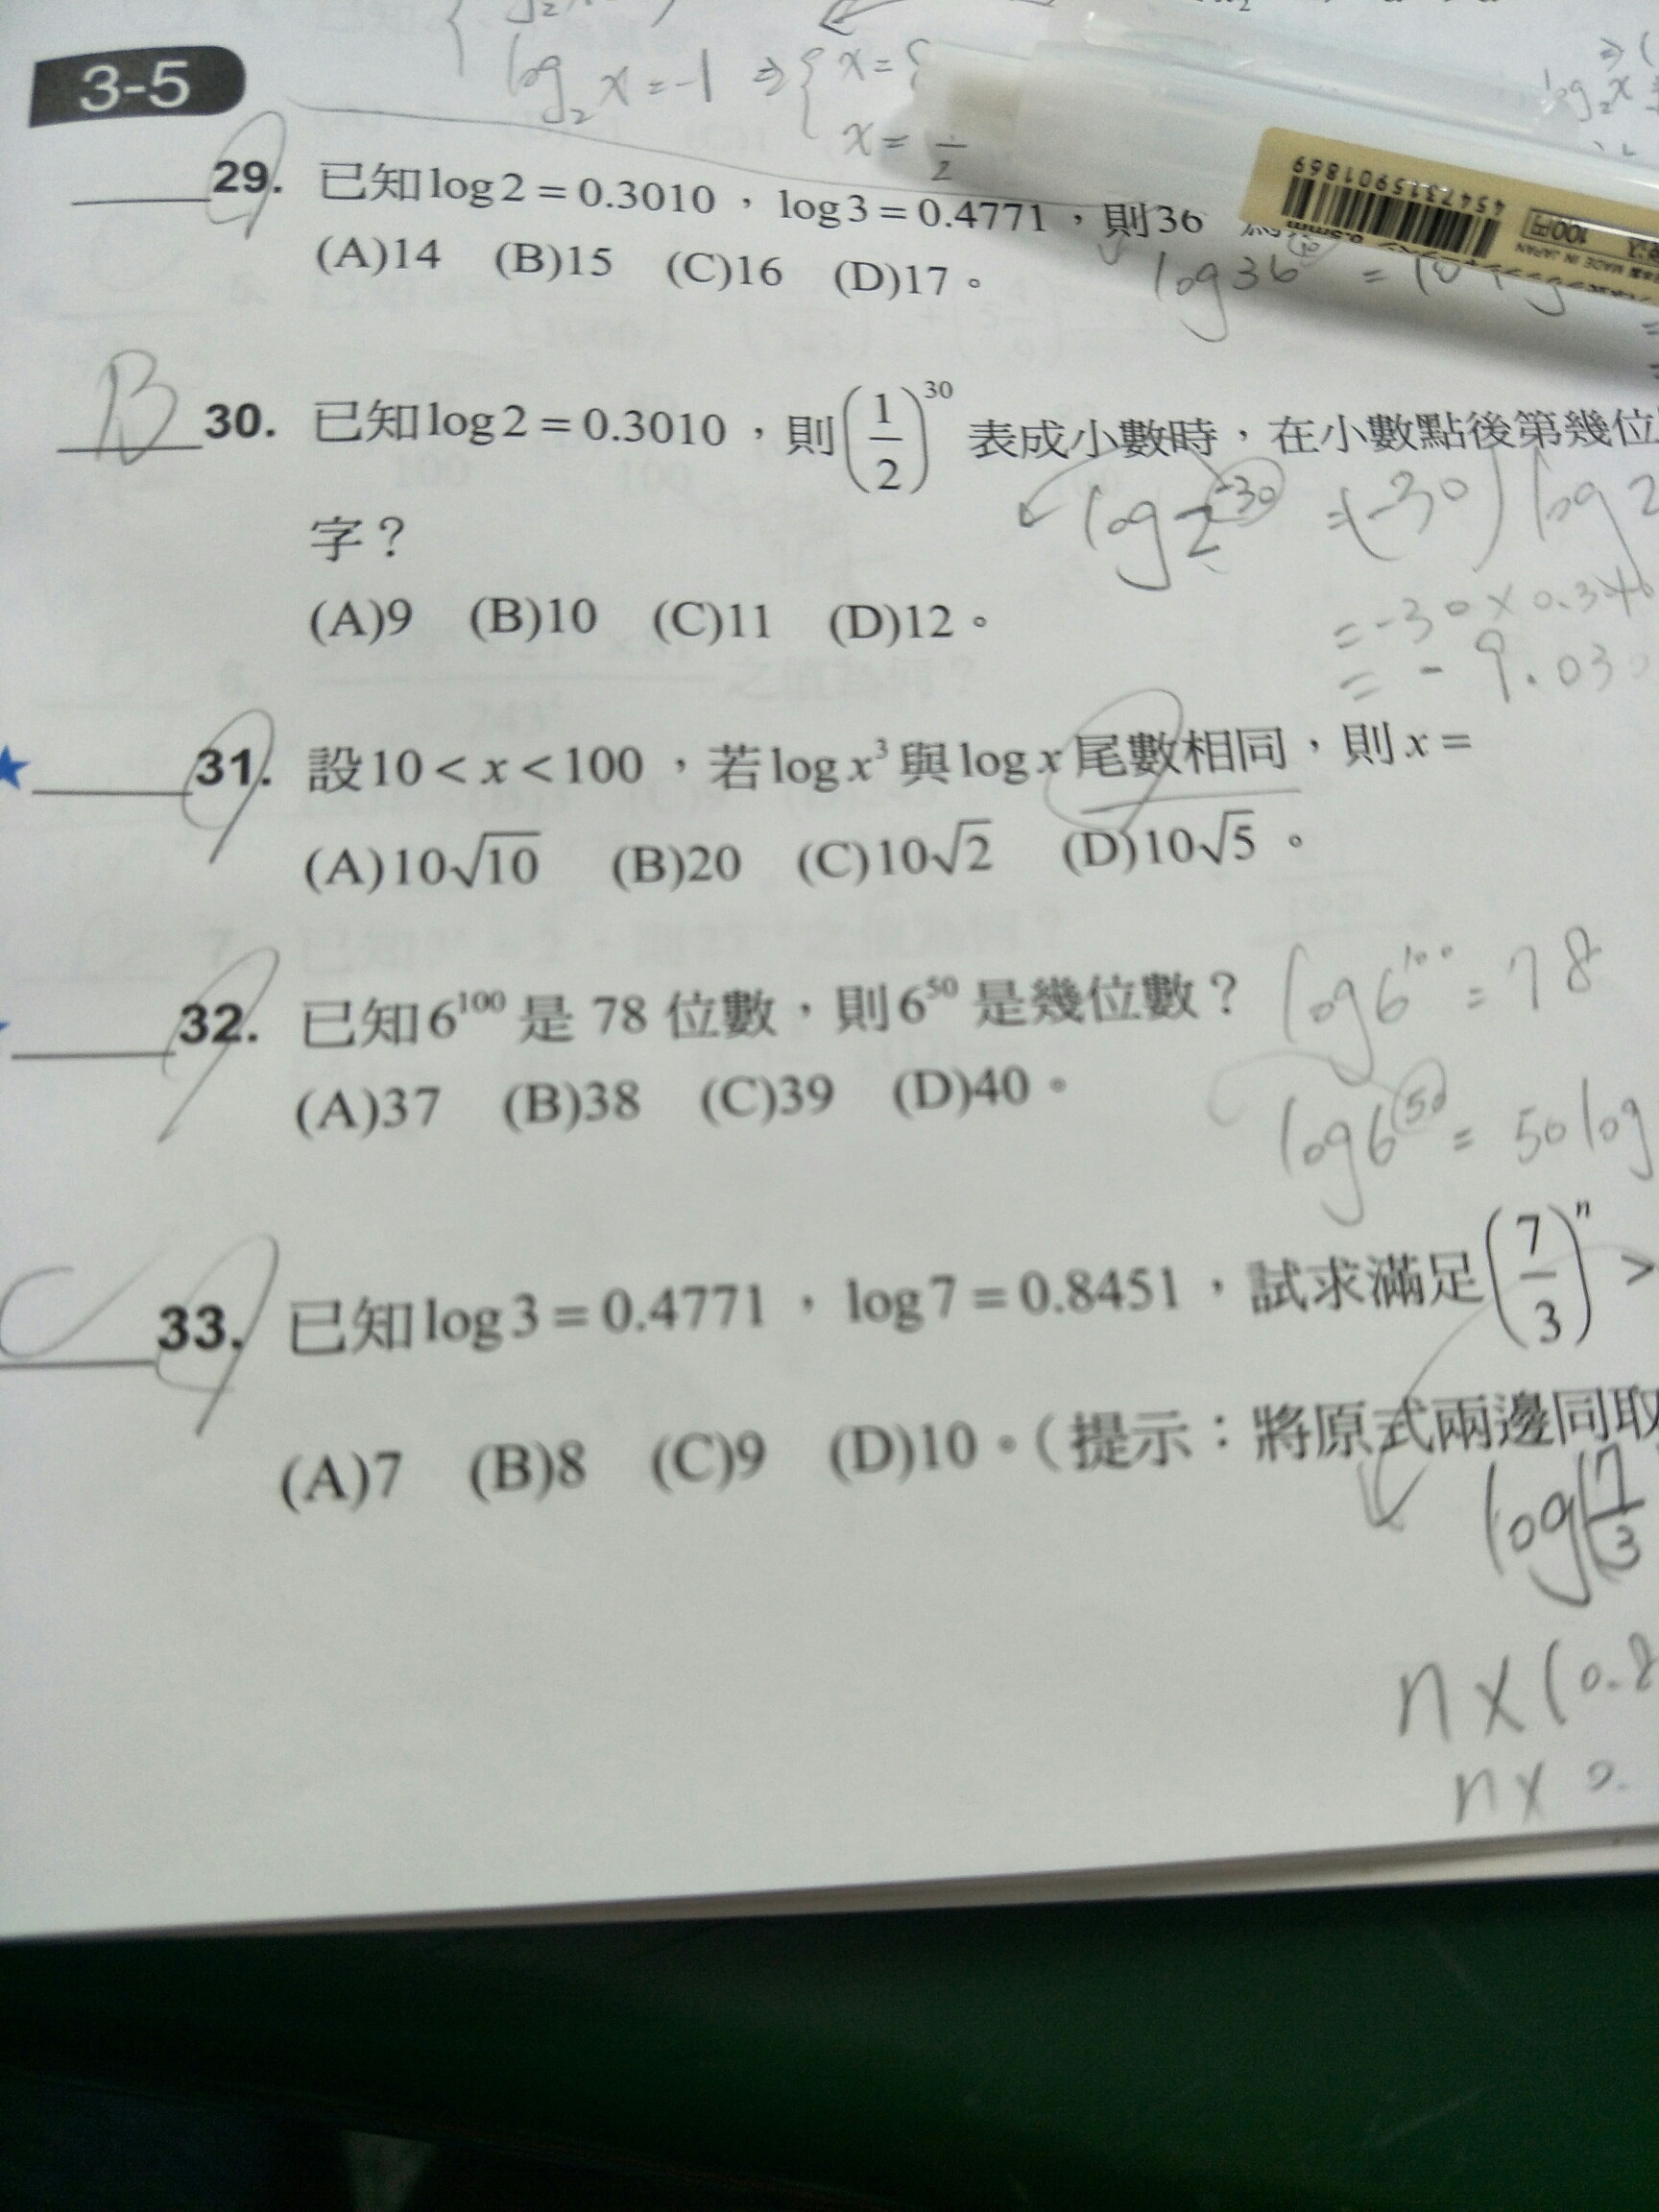 log₂ x = -1 ⇒ { x =
x = 1/2
3-5
29. 已知 log 2 = 0.3010 ，log 3 = 0.4771 ，則 36
(A)14 (B)15 (C)16 (D)17。
log 36^10 =
4547315901869
100円
MADE IN JAPAN
B 30. 已知 log 2 = 0.3010 ，則 (1/2)^30 表成小數時，在小數點後第幾位
log 2^-30 = (-30) log 2
字？
= -30 × 0.3
(A)9 (B)10 (C)11 (D)12。
= - 9.030
31. 設 10 < x < 100 ，若 log x³ 與 log x 尾數相同，則 x =
(A)10√10 (B)20 (C)10√2 (D)10√5 。
32. 已知 6^100 是 78 位數，則 6^50 是幾位數？ log 6^100 = 78
(A)37 (B)38 (C)39 (D)40。
log 6^50 = 50 log
C 33. 已知 log 3 = 0.4771 ，log 7 = 0.8451 ，試求滿足 (7/3)^n >
(A)7 (B)8 (C)9 (D)10。（提示：將原式兩邊同取
log(7/3
n × (0.8
n × 0.